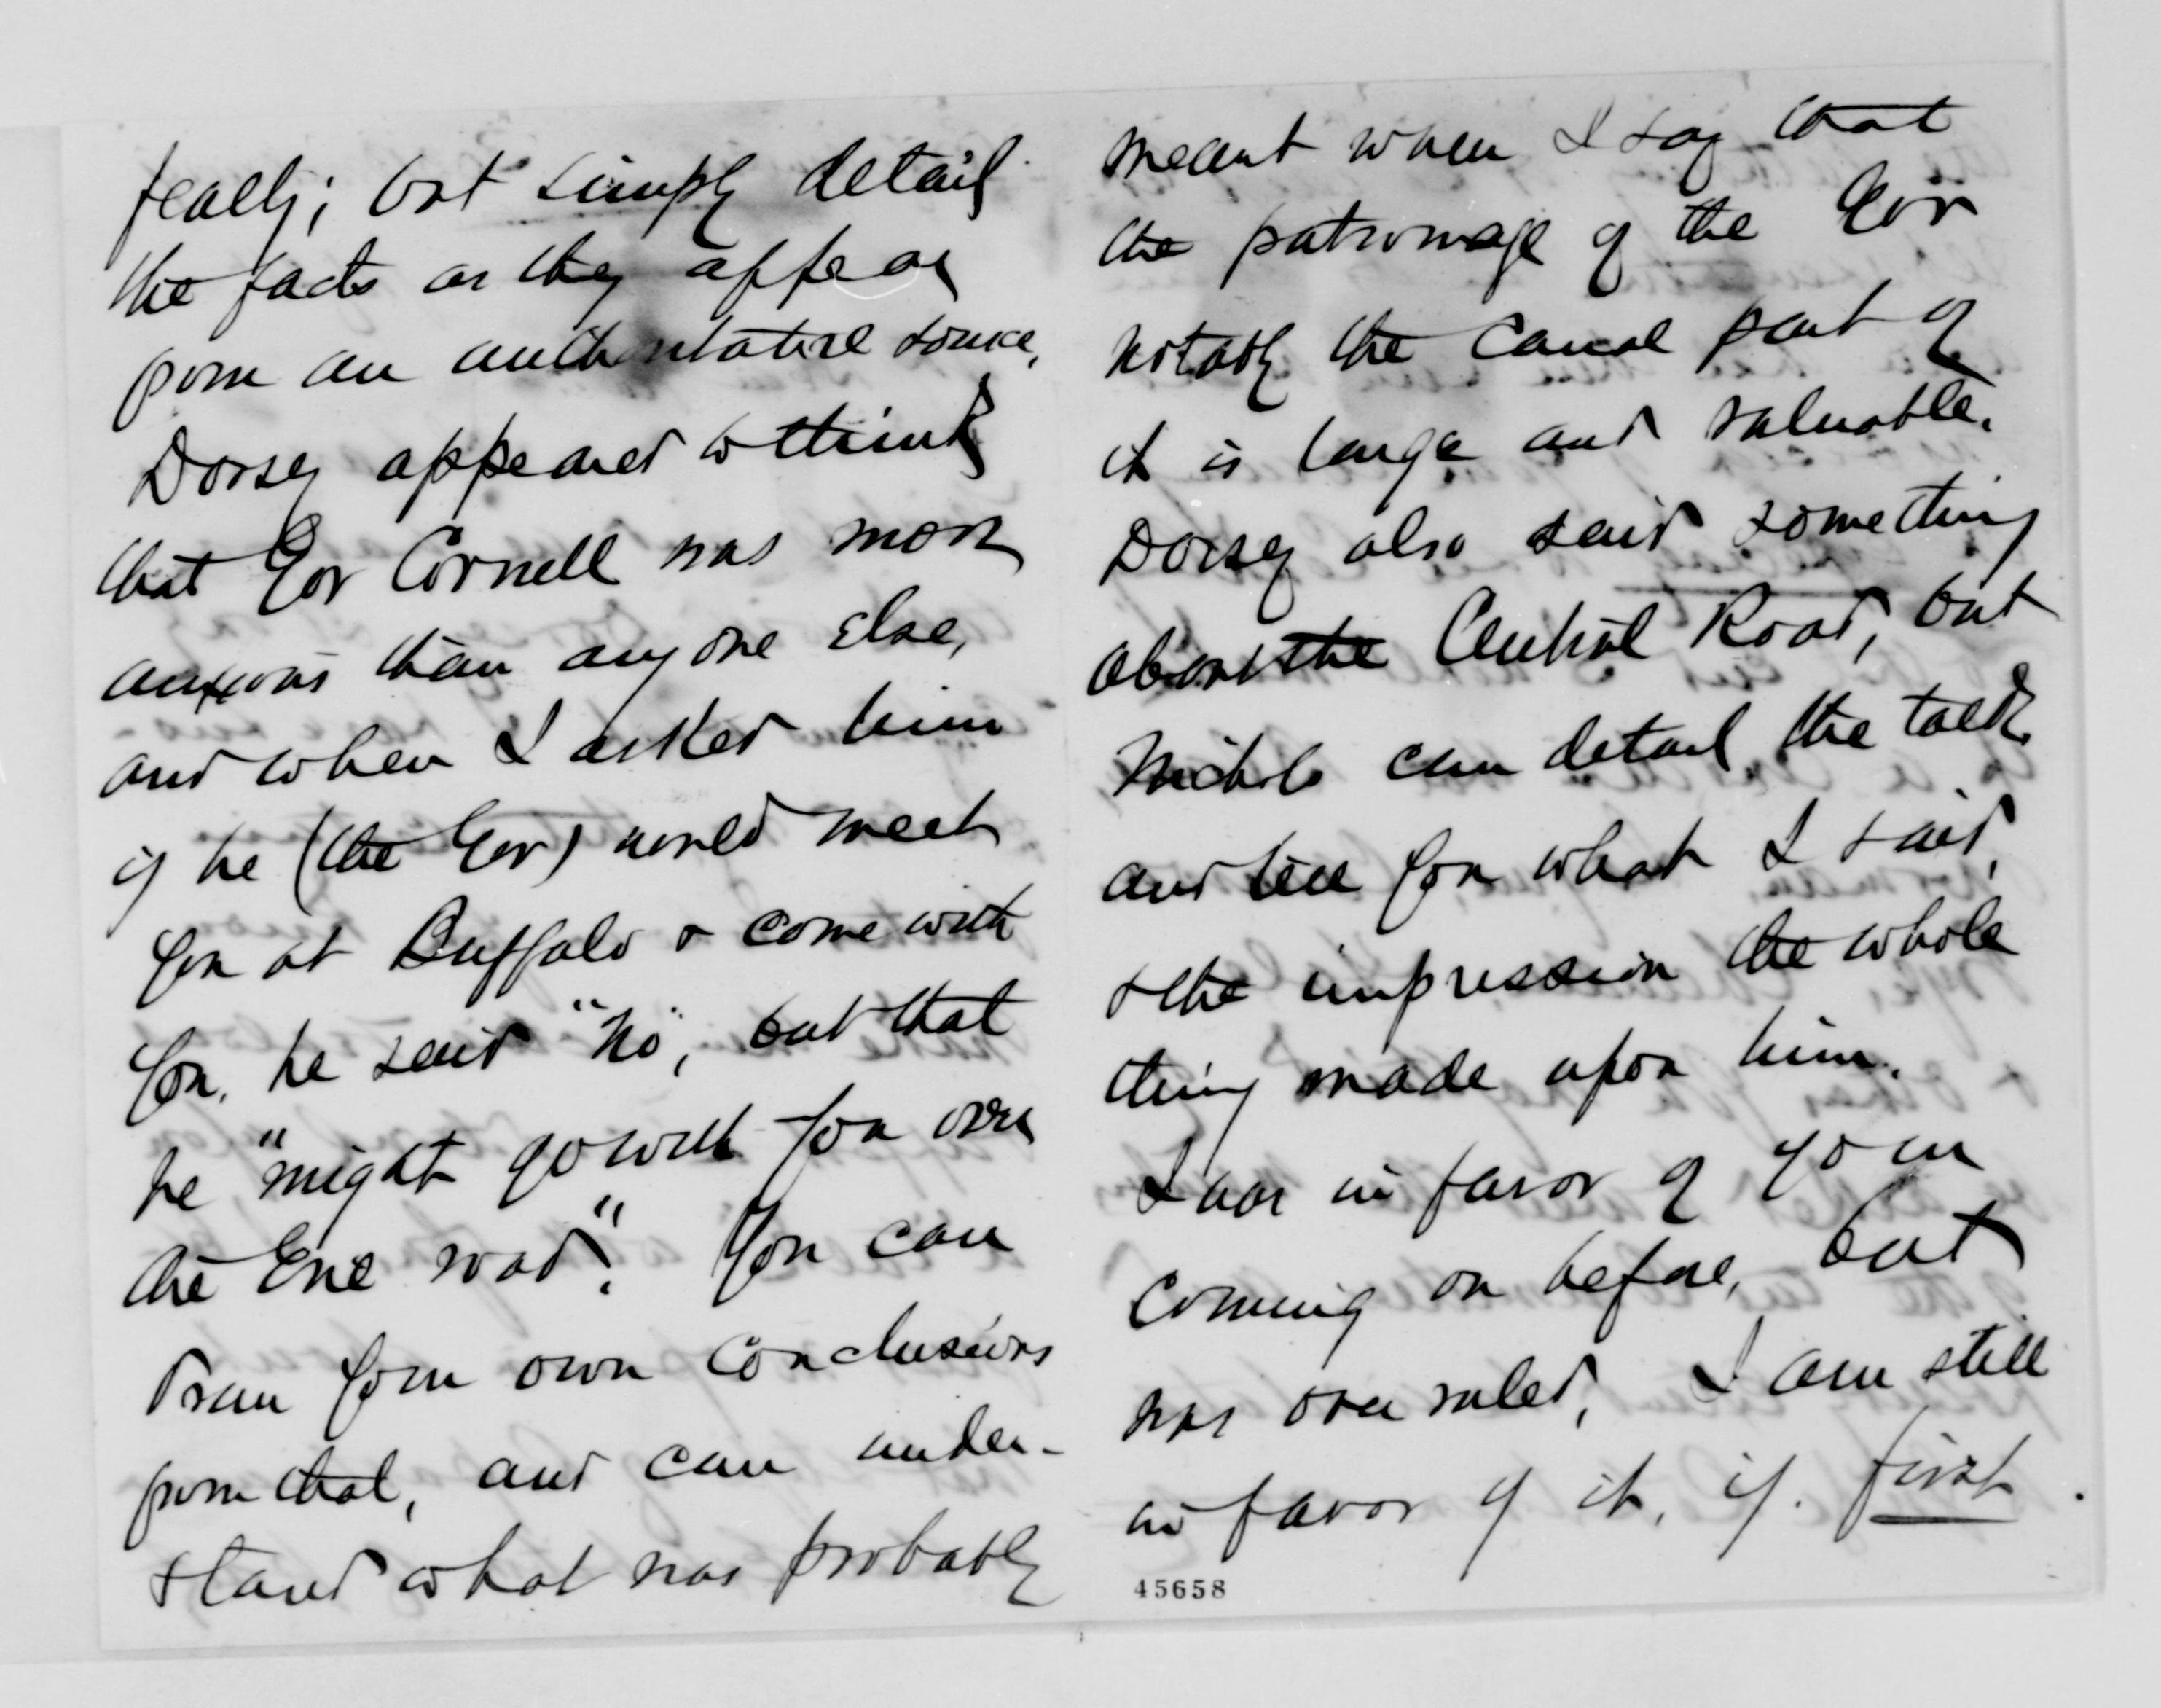 really; but simply detail
the facts as they appear
from an authoritative source.
Dorsey appeared to think
that Gov Cornell was more
anxious than anyone else,
and when I asked him
if he (the Gov) would meet
you at Buffalo & come with
you, he said "No", but that
he "might go with you over
the Erie road". You can
draw your own conclusions
from that, and can under-
stand what was probably
meant when I say that
the patronage of the Gov
notably the Canal part of
it is large and valuable.
Dorsey also said something
about the Central Road, but
Nichols can detail the talk
and tell you what I said,
& the impression the whole
thing made upon him.
I was in favor of yo ur
coming on before, but
was over ruled, I am still
in favor of it, if first
45658